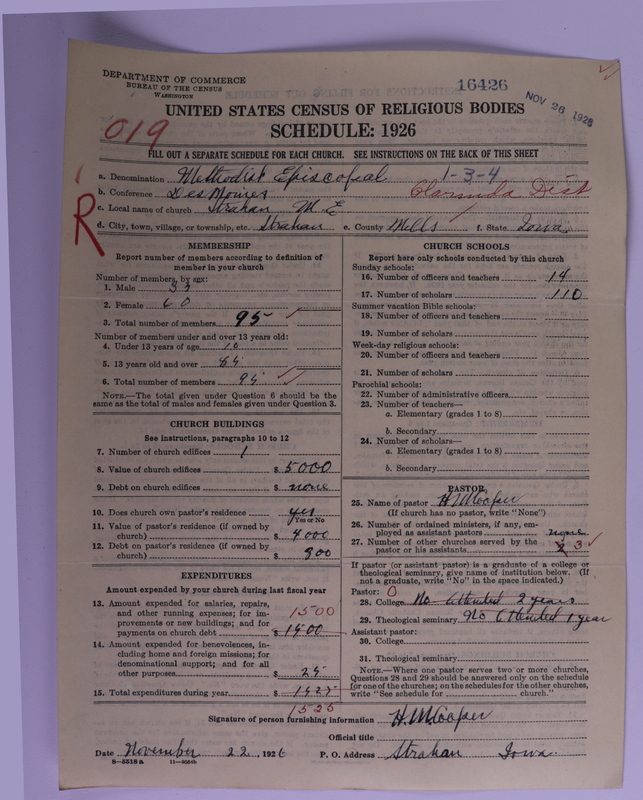 DEPARTMENT OF COMMERCE
BUREAU OF THE CENSUS
WASHINGTON
16426
NOV 26 1926
UNITED STATES CENSUS OF RELIGIOUS BODIES
SCHEDULE: 1926
019
FILL OUT A SEPARATE SCHEDULE FOR EACH CHURCH. SEE INSTRUCTIONS ON THE BACK OF THIS SHEET
a. Denomination Methodist Episcopal 1-3-4
b. Conference Des Moines Clarinda Dist
c. Local name of church Strahan M. E.
R
d. City, town, village, or township, etc. Strahan e. County Mills f. State Iowa
MEMBERSHIP
Report number of members according to definition of
member in your church
Number of members, by sex:
1. Male
2. Female 60
3. Total number of members 95
Number of members under and over 13 years old:
4. Under 13 years of age 10
5. 13 years old and over 85
6. Total number of members 95
NOTE.—The total given under Question 6 should be the
same as the total of males and females given under Question 3.
CHURCH BUILDINGS
See instructions, paragraphs 10 to 12
7. Number of church edifices 1
8. Value of church edifices $ 5000
9. Debt on church edifices $ none
10. Does church own pastor's residence yes
Yes or No
11. Value of pastor's residence (if owned by
church) $ 4000
12. Debt on pastor's residence (if owned by
church) $ 800
EXPENDITURES
Amount expended by your church during last fiscal year
13. Amount expended for salaries, repairs,
and other running expenses; for im-
provements or new buildings; and for
payments on church debt $ 1500
1500
14. Amount expended for benevolences, in-
cluding home and foreign missions; for
denominational support; and for all
other purposes $ 25
15. Total expenditures during year $ 1525
1525
CHURCH SCHOOLS
Report here only schools conducted by this church
Sunday schools:
16. Number of officers and teachers 14
17. Number of scholars 110
Summer vacation Bible schools:
18. Number of officers and teachers
19. Number of scholars
Week-day religious schools:
20. Number of officers and teachers
21. Number of scholars
Parochial schools:
22. Number of administrative officers
23. Number of teachers—
a. Elementary (grades 1 to 8)
b. Secondary
24. Number of scholars—
a. Elementary (grades 1 to 8)
b. Secondary
PASTOR
25. Name of pastor H. M. Cooper
(If church has no pastor, write "None")
26. Number of ordained ministers, if any, em-
ployed as assistant pastors none
27. Number of other churches served by the
pastor or his assistants 3
If pastor (or assistant pastor) is a graduate of a college or
theological seminary, give name of institution below. (If
not a graduate, write "No" in the space indicated.)
Pastor: 0
28. College No Attended 2 years
29. Theological seminary No Attended 1 year
Assistant pastor:
30. College
31. Theological seminary
NOTE.—Where one pastor serves two or more churches,
Questions 28 and 29 should be answered only on the schedule
for one of the churches; on the schedules for the other churches,
write "See schedule for church."
Signature of person furnishing information H. M. Cooper
Official title
Date November 22, 1926 P. O. Address Strahan Iowa
8—5518a 11—9024b